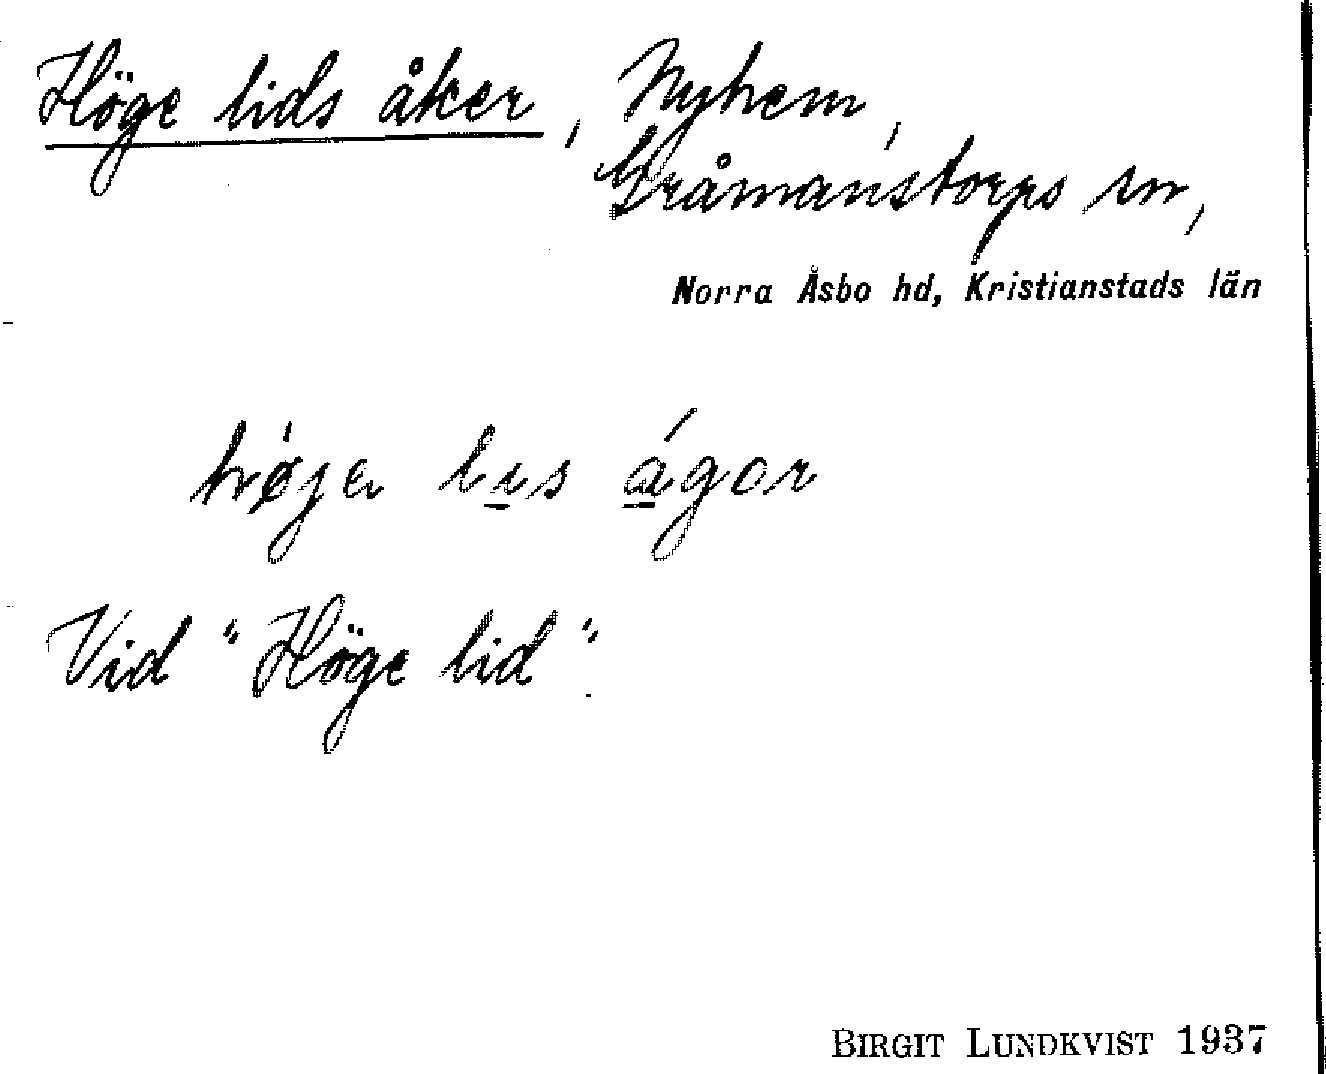 Höge lids åker, Nyhem,
Gråmanstorps sn,
Norra Åsbo hd, Kristianstads län
hø̍ja lı̲s á̲gor
Vid "Höge lid".
BIRGIT LUNDKVIST 1937